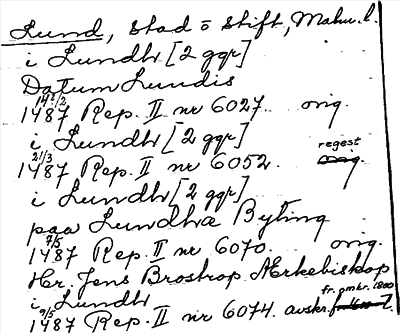 Lund, Stad o Stift, Malm. l.
i Lundh [2 ggr]
Datum Lundis
14 8/2
1487 Rep. II nr 6027. orig.
i Lundh [2 ggr] regest
21/3
1487 Rep. II nr 6052. orig.
i Lundh [2 ggr]
paa Lundhæ Byting
7/5
1487 Rep. II nr 6070. orig.
Hr. Jens Brostrop Ærkebiskop
i Lundh fr. omkr. 1800
9/5
1487 Rep. II nr 6074. avskr.